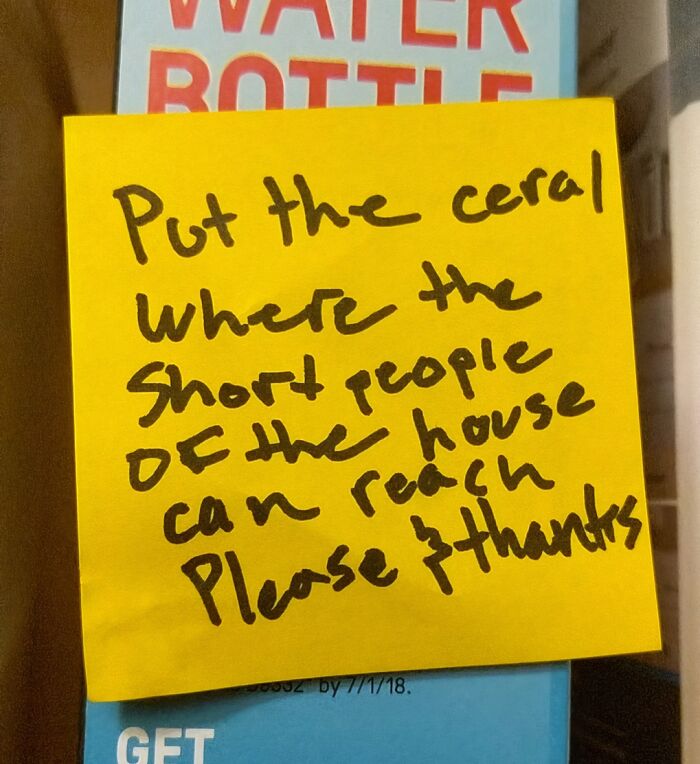 WATER
BOTTLE
Put the ceral
where the
short people
of the house
can reach
Please & thanks
by 7/1/18.
GET